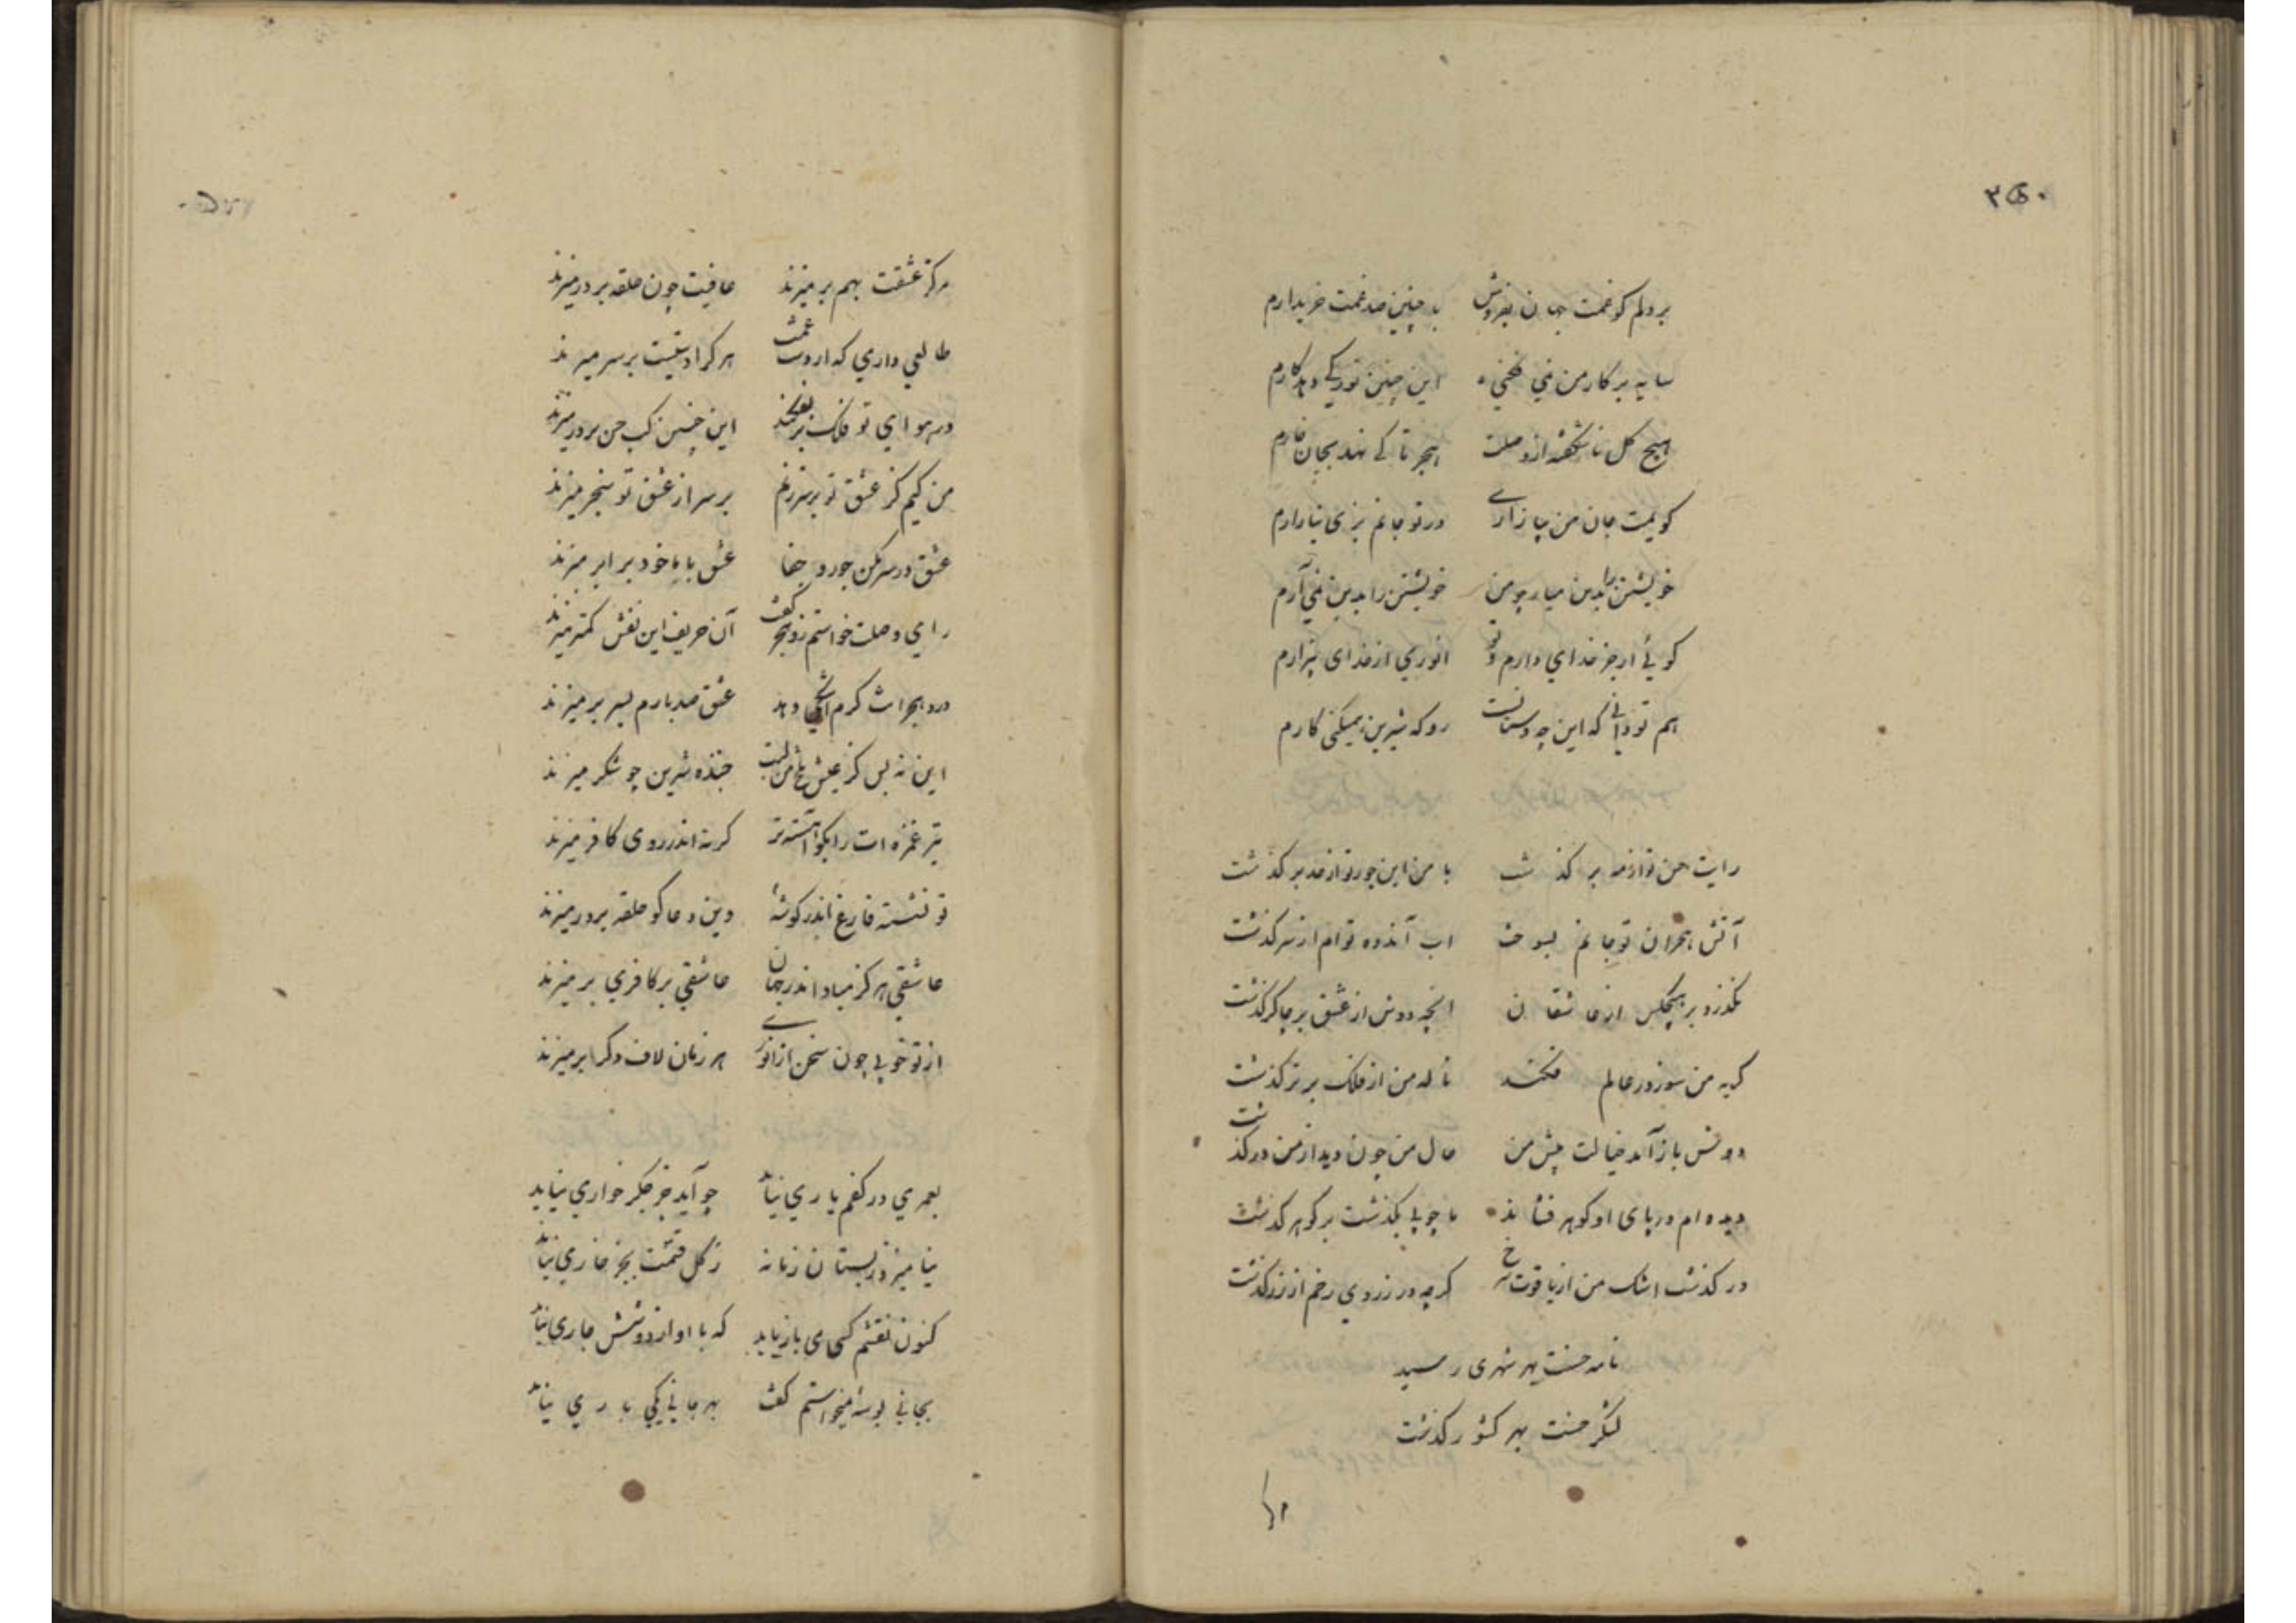 ۳۵۰
بر دلم کو غمت جهان بفروش بد چنین صد غمت خریدارم
سایه بر کار من نمی فکنی این چنین نور کی دهد کارم
هیچ گل ناشکفته از وصلت هجر تا کی نهد بجان خارم
کوئیت جان من بیازاری ور تو جانم بری نیازارم
خویشتن را بدین میار چو من خویشتن را بدین نمی آرم
کوئی ار جز خدای دارم و تو انوری از خدای بیزارم
هم تو دانی که این چه دستانست رو که شیرین همیکنی کارم
رایت حسن تو از مه بر گذشت با من این جور تو از حد بر گذشت
آتش هجران تو جانم بسوخت اب آنده تو ام از سر گذشت
نگذرد بر هیچکس از عاشقان انچه دوش از عشق بر چاکر گذشت
گریه من سوز در عالم فکند ناله من از فلک برتر گذشت
دوش باز آمد خیالت پیش من حال من چون دید از من در گذشت
دیده ام در پای او گوهر فشاند تا چو پی بگذشت بر گوهر گذشت
در گذشت اشک من از یاقوت سرخ گرچه در زردی رخم از زر گذشت
نامه حسنت بهر شهری رسید
لشگر حسنت بهر کشور گذشت
هرکز عشقت بهم بر میزند عافیت چون حلقه بر در میزند
طالعی داری که از دست غمت هر کرا دستیست بر سر میزند
در هوای تو فلک پر بفکند این چنین کب حسن بر در میزند
من کیم کز عشق تو بر سر زنم بر سر از عشق تو سنجر میزند
عشق در سر مکن جور و جفا عشق با ما خود برابر میزند
رای وصلت خواستم زد هجر گفت آن حریف این نقش کمتر میزند
درد هجرات گرم شبی دهد عشق صد بارم بسر بر میزند
این نه بس کز عیش تلخ من لبت خنده شیرین چو شکر میزند
تیر غمزه ات را بگو آهسته تر گر نه اندر روی کافر میزند
تو نشسته فارغ اندر گوشه وین دعاگو حلقه بر در میزند
عاشقی هرگز مباد اندر جهان عاشقی بر کافری بر میزند
از تو خوبی چون سخن از انوری هر زمان لاف دگر ابر میزند
بعمری در کفم یاری نیاید چو آید جز جگر خواری نیاید
نیامیزد ز بستان زمانه ز گل قسمت بجز خاری نیاید
کنون نقشم کمی می باز نیاید که با او از دو شش چاری نیاید
بجانی بوسه میخواستم گفت بهر جانی یکی باری نیاید